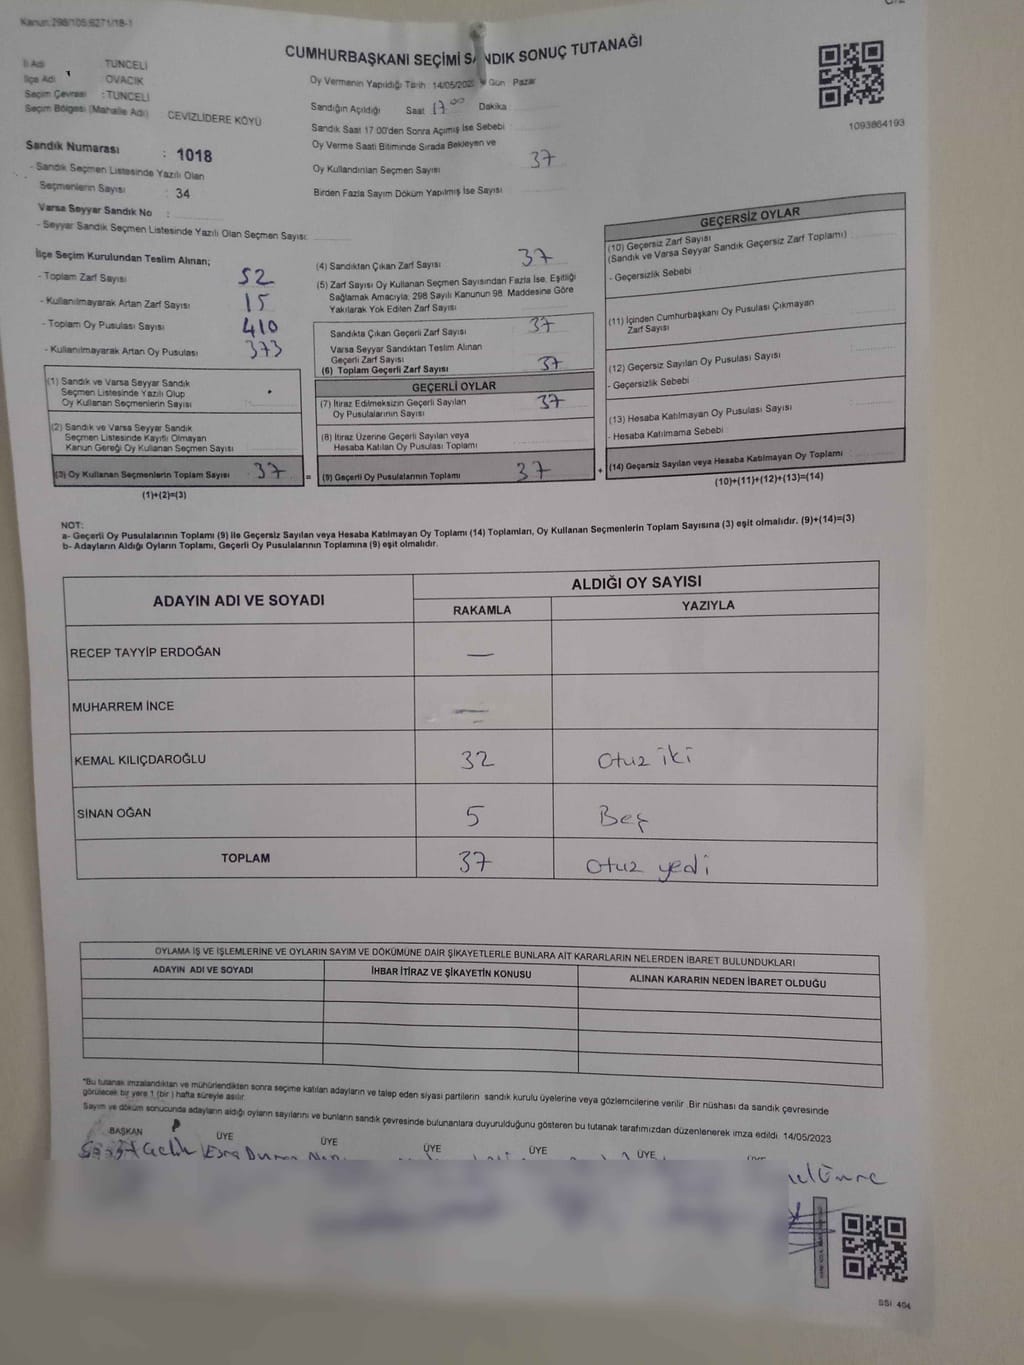 Kanun:298/105;6271/18-1
CUMHURBAŞKANI SEÇİMİ SANDIK SONUÇ TUTANAĞI
1093864193
İl Adı : TUNCELİ
İlçe Adı : OVACIK
Seçim Çevresi : TUNCELİ
Seçim Bölgesi (Mahalle Adı) CEVİZLİDERE KÖYÜ
Sandık Numarası : 1018
- Sandık Seçmen Listesinde Yazılı Olan
Seçmenlerin Sayısı : 34
Varsa Seyyar Sandık No :
- Seyyar Sandık Seçmen Listesinde Yazılı Olan Seçmen Sayısı:
Oy Vermenin Yapıldığı Tarih 14/05/2023 Gün Pazar
Sandığın Açıldığı Saat 17 00 Dakika
Sandık Saat 17:00'den Sonra Açımış İse Sebebi :
Oy Verme Saati Bitiminde Sırada Bekleyen ve
Oy Kullandırılan Seçmen Sayısı 37
Birden Fazla Sayım Döküm Yapılmış İse Sayısı
İlçe Seçim Kurulundan Teslim Alınan;
- Toplam Zarf Sayısı 52
- Kullanılmayarak Artan Zarf Sayısı 15
- Toplam Oy Pusulası Sayısı 410
- Kullanılmayarak Artan Oy Pusulası 373
(1) Sandık ve Varsa Seyyar Sandık
Seçmen Listesinde Yazılı Olup
Oy Kullanan Seçmenlerin Sayısı
(2) Sandık ve Varsa Seyyar Sandık
Seçmen Listesinde Kayıtlı Olmayan
Kanun Gereği Oy Kullanan Seçmen Sayısı
(3) Oy Kullanan Seçmenlerin Toplam Sayısı 37 =
(1)+(2)=(3)
(4) Sandıktan Çıkan Zarf Sayısı 37
(5) Zarf Sayısı Oy Kullanan Seçmen Sayısından Fazla İse, Eşitliği
Sağlamak Amacıyla, 298 Sayılı Kanunun 98. Maddesine Göre
Yakılarak Yok Edilen Zarf Sayısı
Sandıkta Çıkan Geçerli Zarf Sayısı 37
Varsa Seyyar Sandıktan Teslim Alınan
Geçerli Zarf Sayısı
(6) Toplam Geçerli Zarf Sayısı 37
GEÇERLİ OYLAR
(7) İtiraz Edilmeksizin Geçerli Sayılan
Oy Pusulalarının Sayısı 37
(8) İtiraz Üzerine Geçerli Sayılan veya
Hesaba Katılan Oy Pusulası Toplamı
(9) Geçerli Oy Pusulalarının Toplamı 37 +
GEÇERSİZ OYLAR
(10) Geçersiz Zarf Sayısı
(Sandık ve Varsa Seyyar Sandık Geçersiz Zarf Toplamı)
- Geçersizlik Sebebi
(11) İçinden Cumhurbaşkanı Oy Pusulası Çıkmayan
Zarf Sayısı
(12) Geçersiz Sayılan Oy Pusulası Sayısı
- Geçersizlik Sebebi
(13) Hesaba Katılmayan Oy Pusulası Sayısı
- Hesaba Katılmama Sebebi
(14) Geçersiz Sayılan veya Hesaba Katılmayan Oy Toplamı
(10)+(11)+(12)+(13)=(14)
NOT:
a- Geçerli Oy Pusulalarının Toplamı (9) ile Geçersiz Sayılan veya Hesaba Katılmayan Oy Toplamı (14) Toplamları, Oy Kullanan Seçmenlerin Toplam Sayısına (3) eşit olmalıdır. (9)+(14)=(3)
b- Adayların Aldığı Oyların Toplamı, Geçerli Oy Pusulalarının Toplamına (9) eşit olmalıdır.
ADAYIN ADI VE SOYADI ALDIĞI OY SAYISI
RAKAMLA YAZIYLA
RECEP TAYYİP ERDOĞAN —
MUHARREM İNCE —
KEMAL KILIÇDAROĞLU 32 otuz iki
SİNAN OĞAN 5 Beş
TOPLAM 37 otuz yedi
OYLAMA İŞ VE İŞLEMLERİNE VE OYLARIN SAYIM VE DÖKÜMÜNE DAİR ŞİKAYETLERLE BUNLARA AİT KARARLARIN NELERDEN İBARET BULUNDUKLARI
ADAYIN ADI VE SOYADI İHBAR İTİRAZ VE ŞİKAYETİN KONUSU ALINAN KARARIN NEDEN İBARET OLDUĞU
*Bu tutanak imzalandıktan ve mühürlendikten sonra seçime katılan adayların ve talep eden siyasi partilerin sandık kurulu üyelerine veya gözlemcilerine verilir .Bir nüshası da sandık çevresinde
görülecek bir yere 1 (bir ) hafta süreyle asılır.
Sayım ve döküm sonucunda adayların aldığı oyların sayılarını ve bunların sandık çevresinde bulunanlara duyurulduğunu gösteren bu tutanak tarafımızdan düzenlenerek imza edildi. 14/05/2023
BAŞKAN ÜYE ÜYE ÜYE ÜYE ÜYE
SSI 404